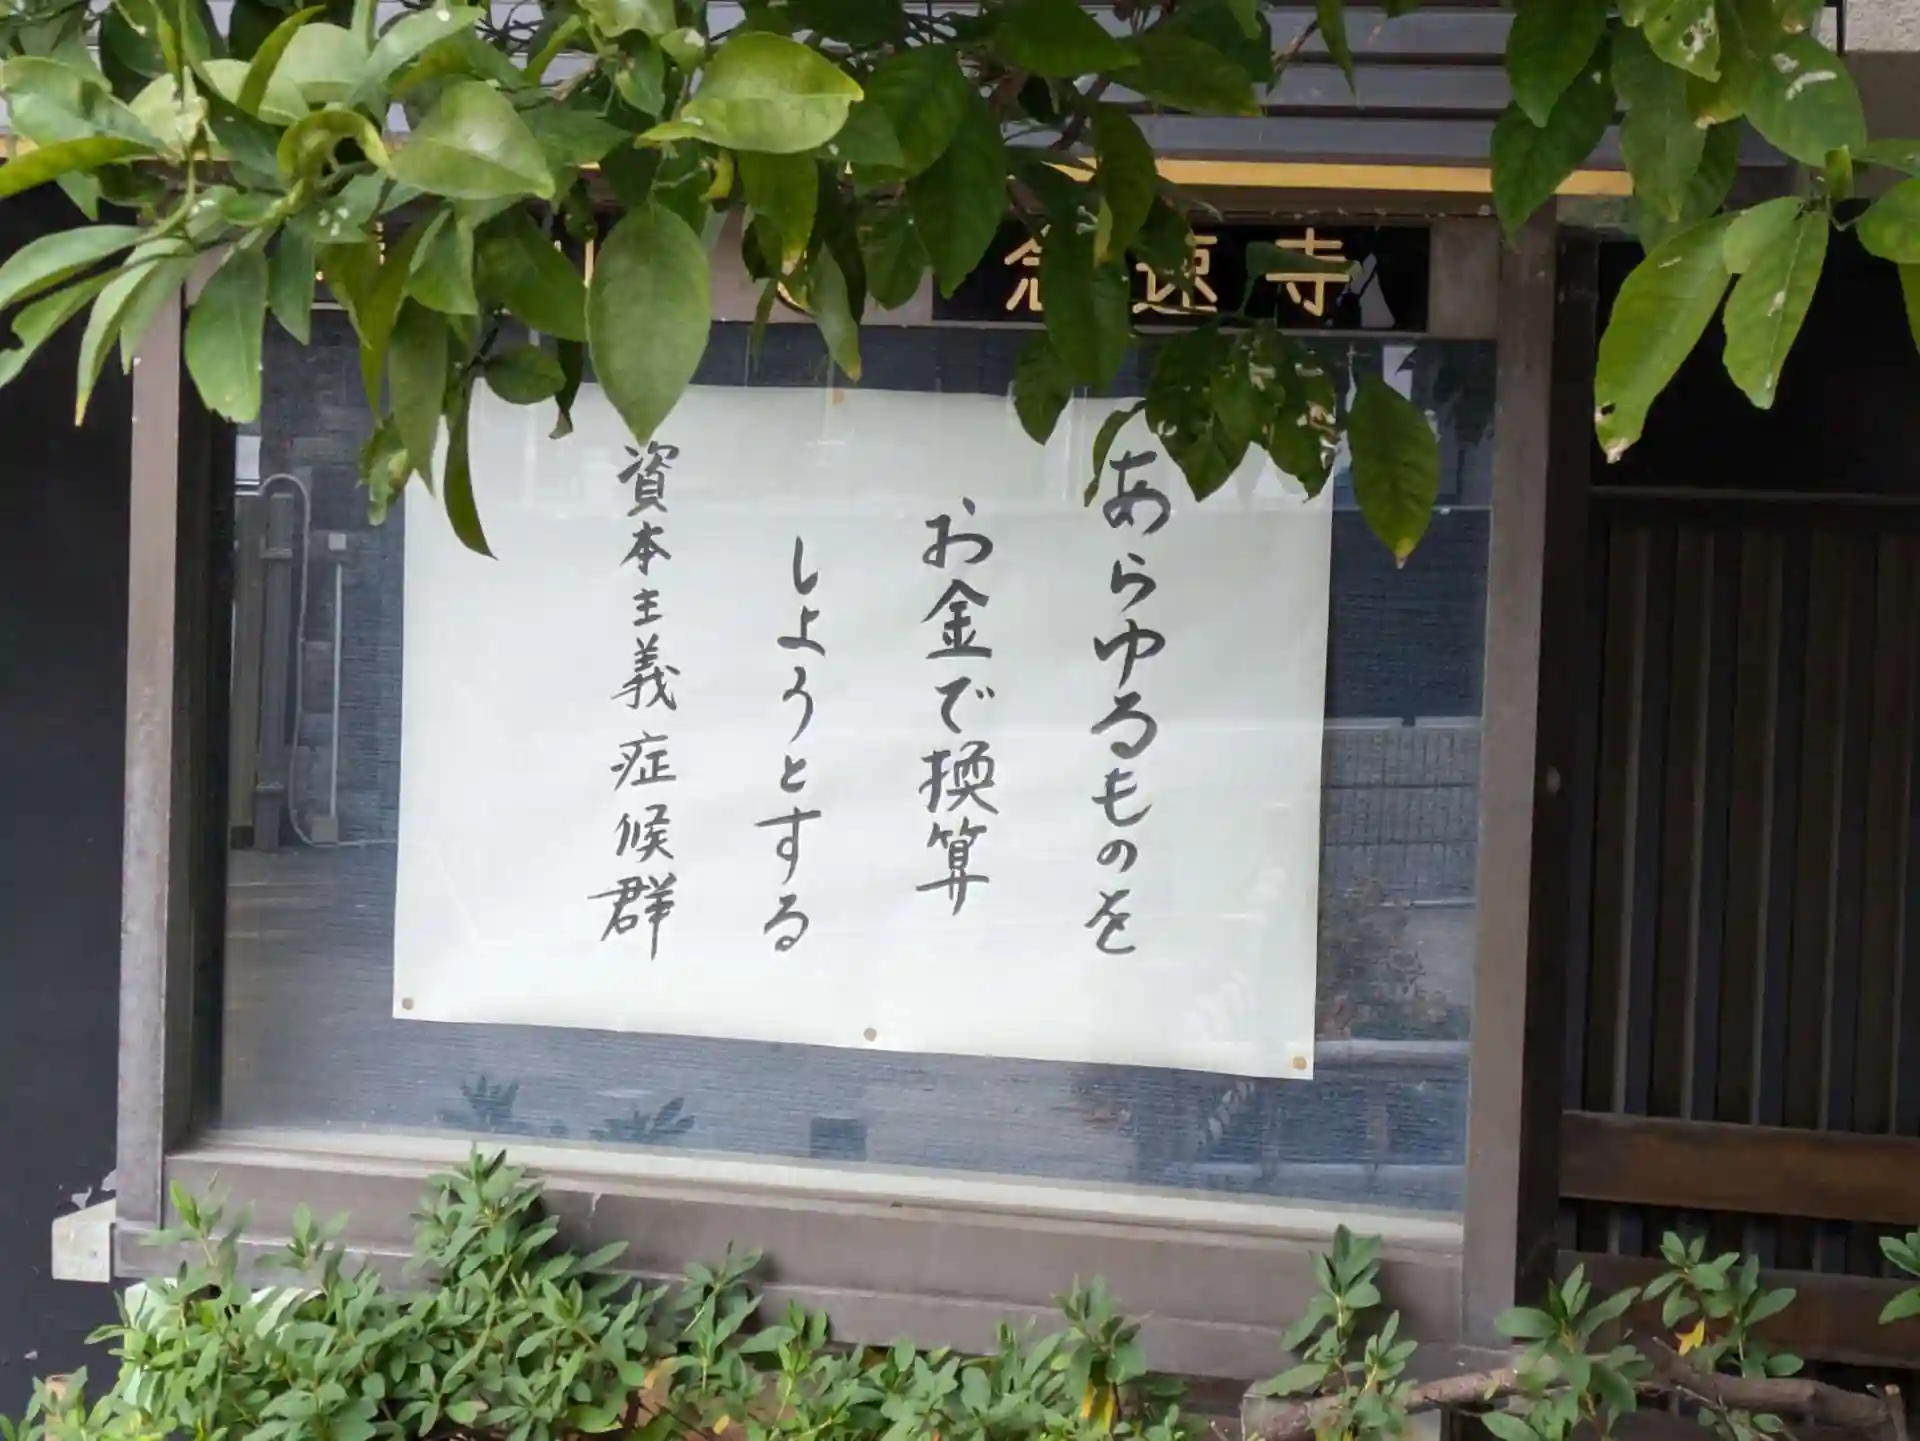 念速寺
あらゆるものを
お金で換算
しようとする
資本主義症候群